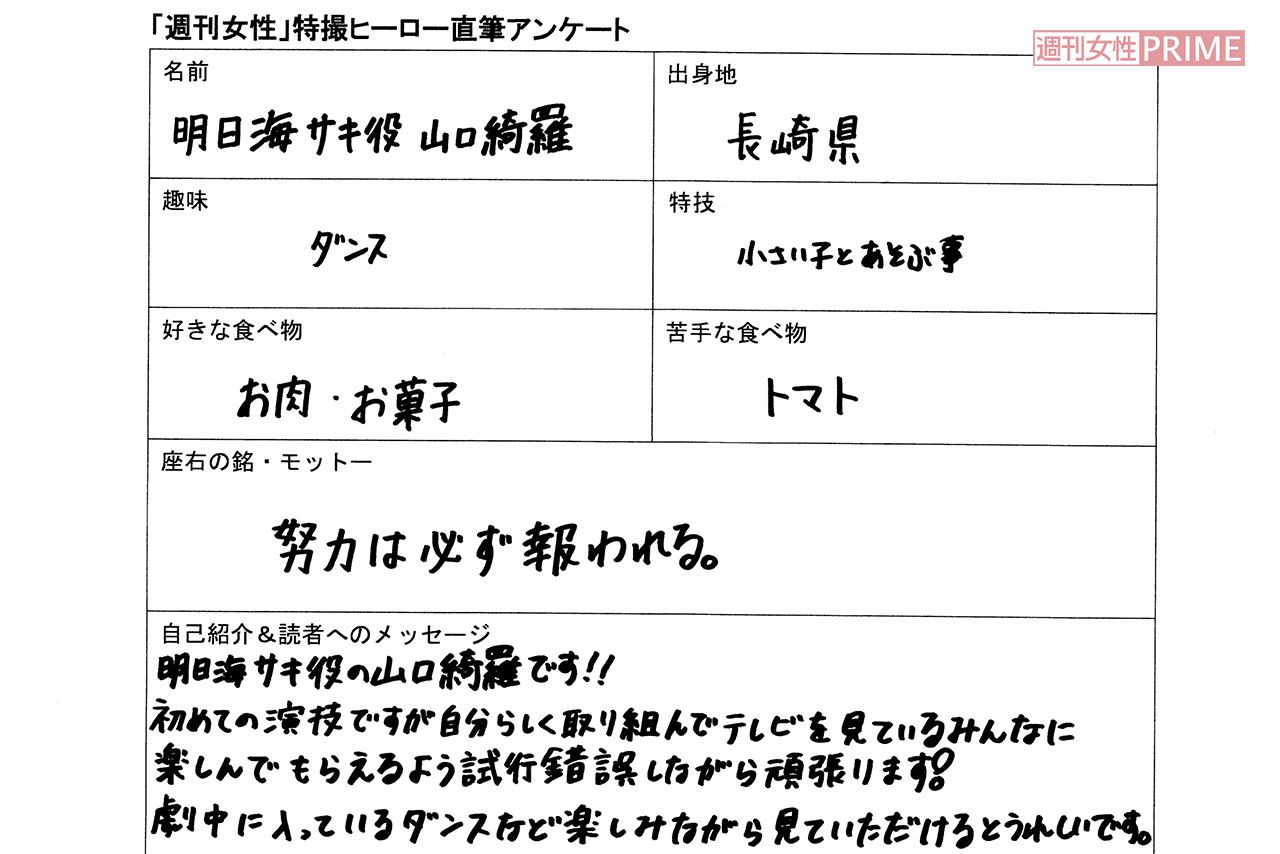 「週刊女性」特撮ヒーロー直筆アンケート
週刊女性PRIME
名前
明日海サキ役 山口綺羅
出身地
長崎県
趣味
ダンス
特技
小さい子とあそぶ事
好きな食べ物
お肉・お菓子
苦手な食べ物
トマト
座右の銘・モットー
努力は必ず報われる。
自己紹介＆読者へのメッセージ
明日海サキ役の山口綺羅です!!
初めての演技ですが自分らしく取り組んでテレビを見ているみんなに
楽しんでもらえるよう試行錯誤しながら頑張ります!
劇中に入っているダンスなど楽しみながら見ていただけるとうれしいです。